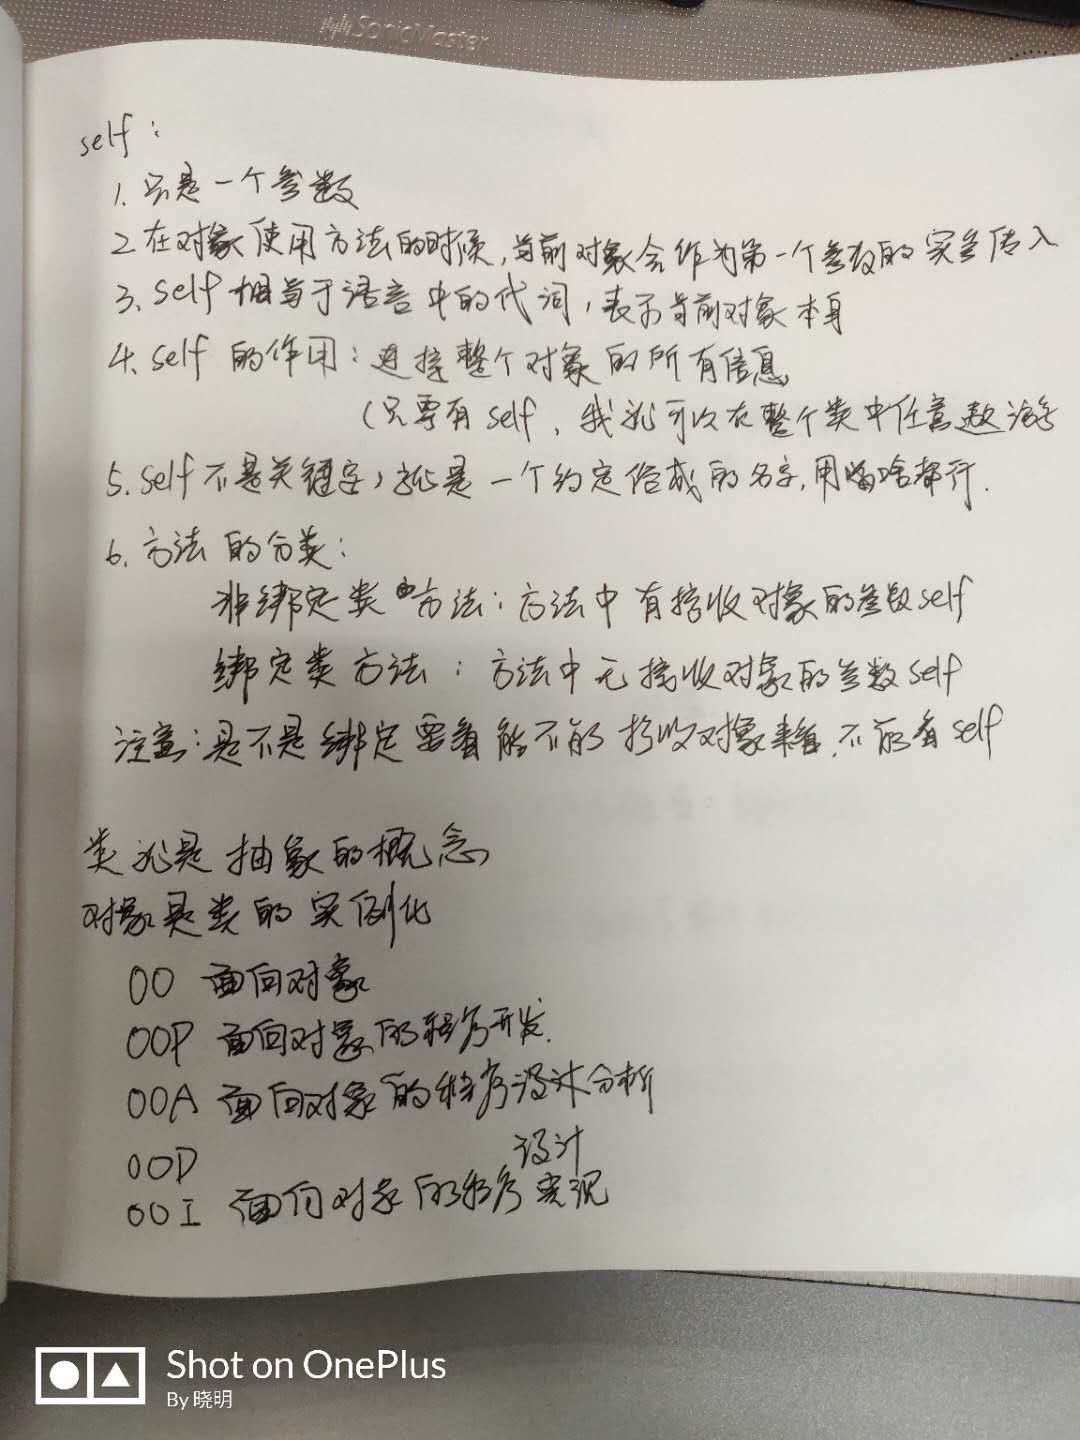 SonicMaster
self:
1. 只是一个参数
2. 在对象使用方法的时候,当前对象会作为第一个参数的实参传入
3. self 相当于语言中的代词,表示当前对象本身
4. self 的作用:连接整个对象的所有信息
(只要有self,我就可以在整个类中任意遨游
5. self不是关键字,就是一个约定俗成的名字,用啥都行.
6. 方法的分类:
非绑定类方法:方法中有接收对象的参数self
绑定类方法:方法中无接收对象的参数self
注意:是不是绑定要看能不能接收对象来看,不能看self
类就是抽象的概念
对象是类的实例化
OO 面向对象
OOP 面向对象的程序开发.
OOA 面向对象的程序设计分析
OOD 设计
OOI 面向对象的程序实现
Shot on OnePlus
By 晓明